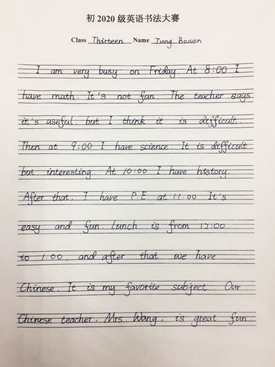 初 2020 级英语书法大赛
Class Thirteen Name Tung Bowen
I am very busy on Friday At 8:00 I
have math. It's not fun. The teacher says
it's useful but I think it is difficult.
Then at 9:00 I have science. It is difficult
but interesting. At 10:00 I have history.
After that, I have P.E at 11:00 It's
easy and fun. Lunch is from 12:00
to 1:00 and after that we have
Chinese. It is my favorite subject. Our
Chinese teacher, Mrs. Wang, is great fun.